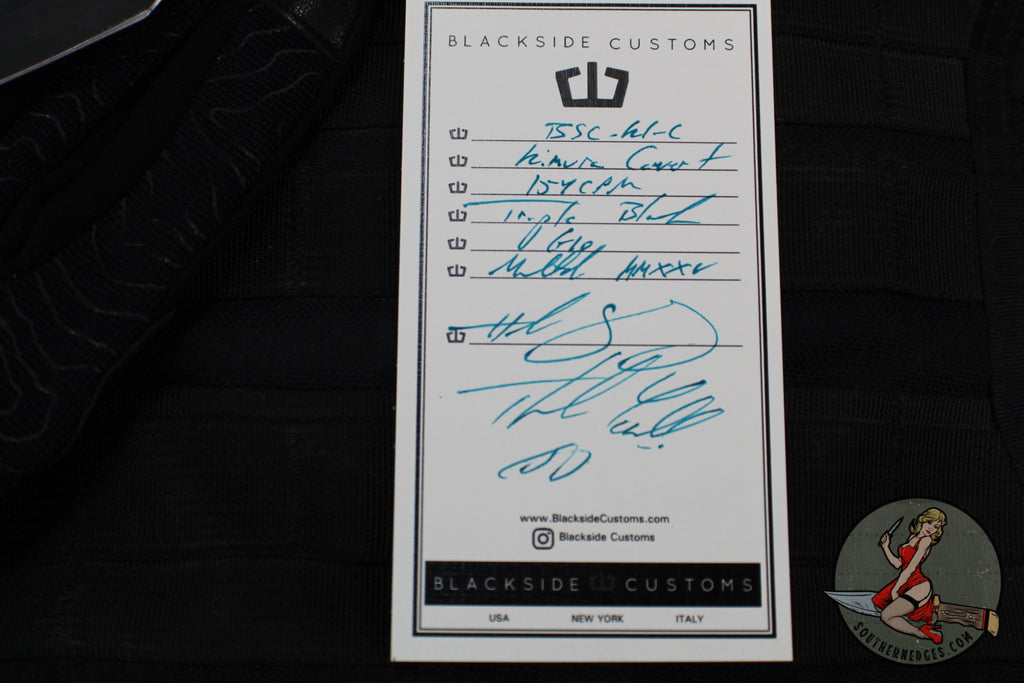 BLACKSIDE CUSTOMS
BSSC-K1-C
Kimura Covert
154CPM
Triple Black
G10
MMXXV
Thank
www.BlacksideCustoms.com
Blackside Customs
BLACKSIDE CUSTOMS
USA NEW YORK ITALY
SOUTHERNEDGES.COM